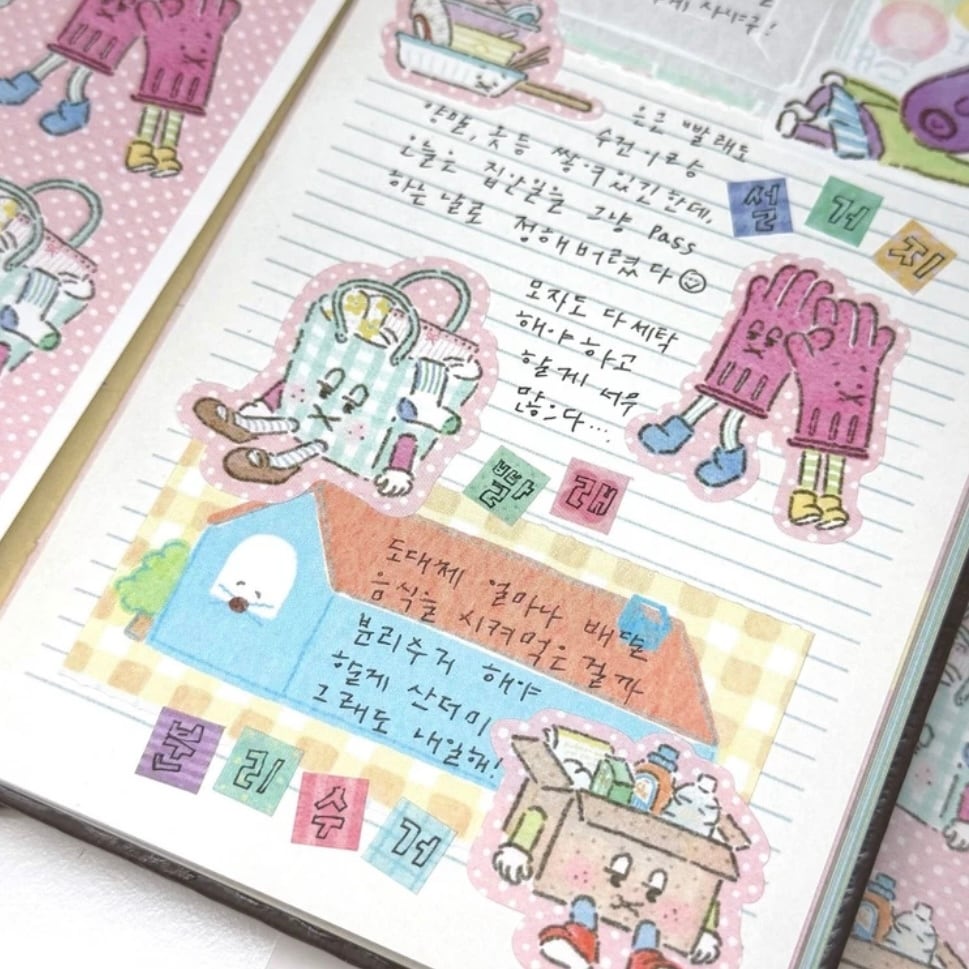 은근 빨래도
수건이랑
양말, 옷등 쌓여있긴한데,
오늘은 집안일을 그냥 pass
하는 날로 정해버렸다
설거지
모자도 다 세탁
해야하고
할게 너무
많으다...
빨래
도대체 얼마나 배달
음식을 시켜먹은 걸까
분리수거 해야
할게 산더미
그래도 내일해!
분리수거